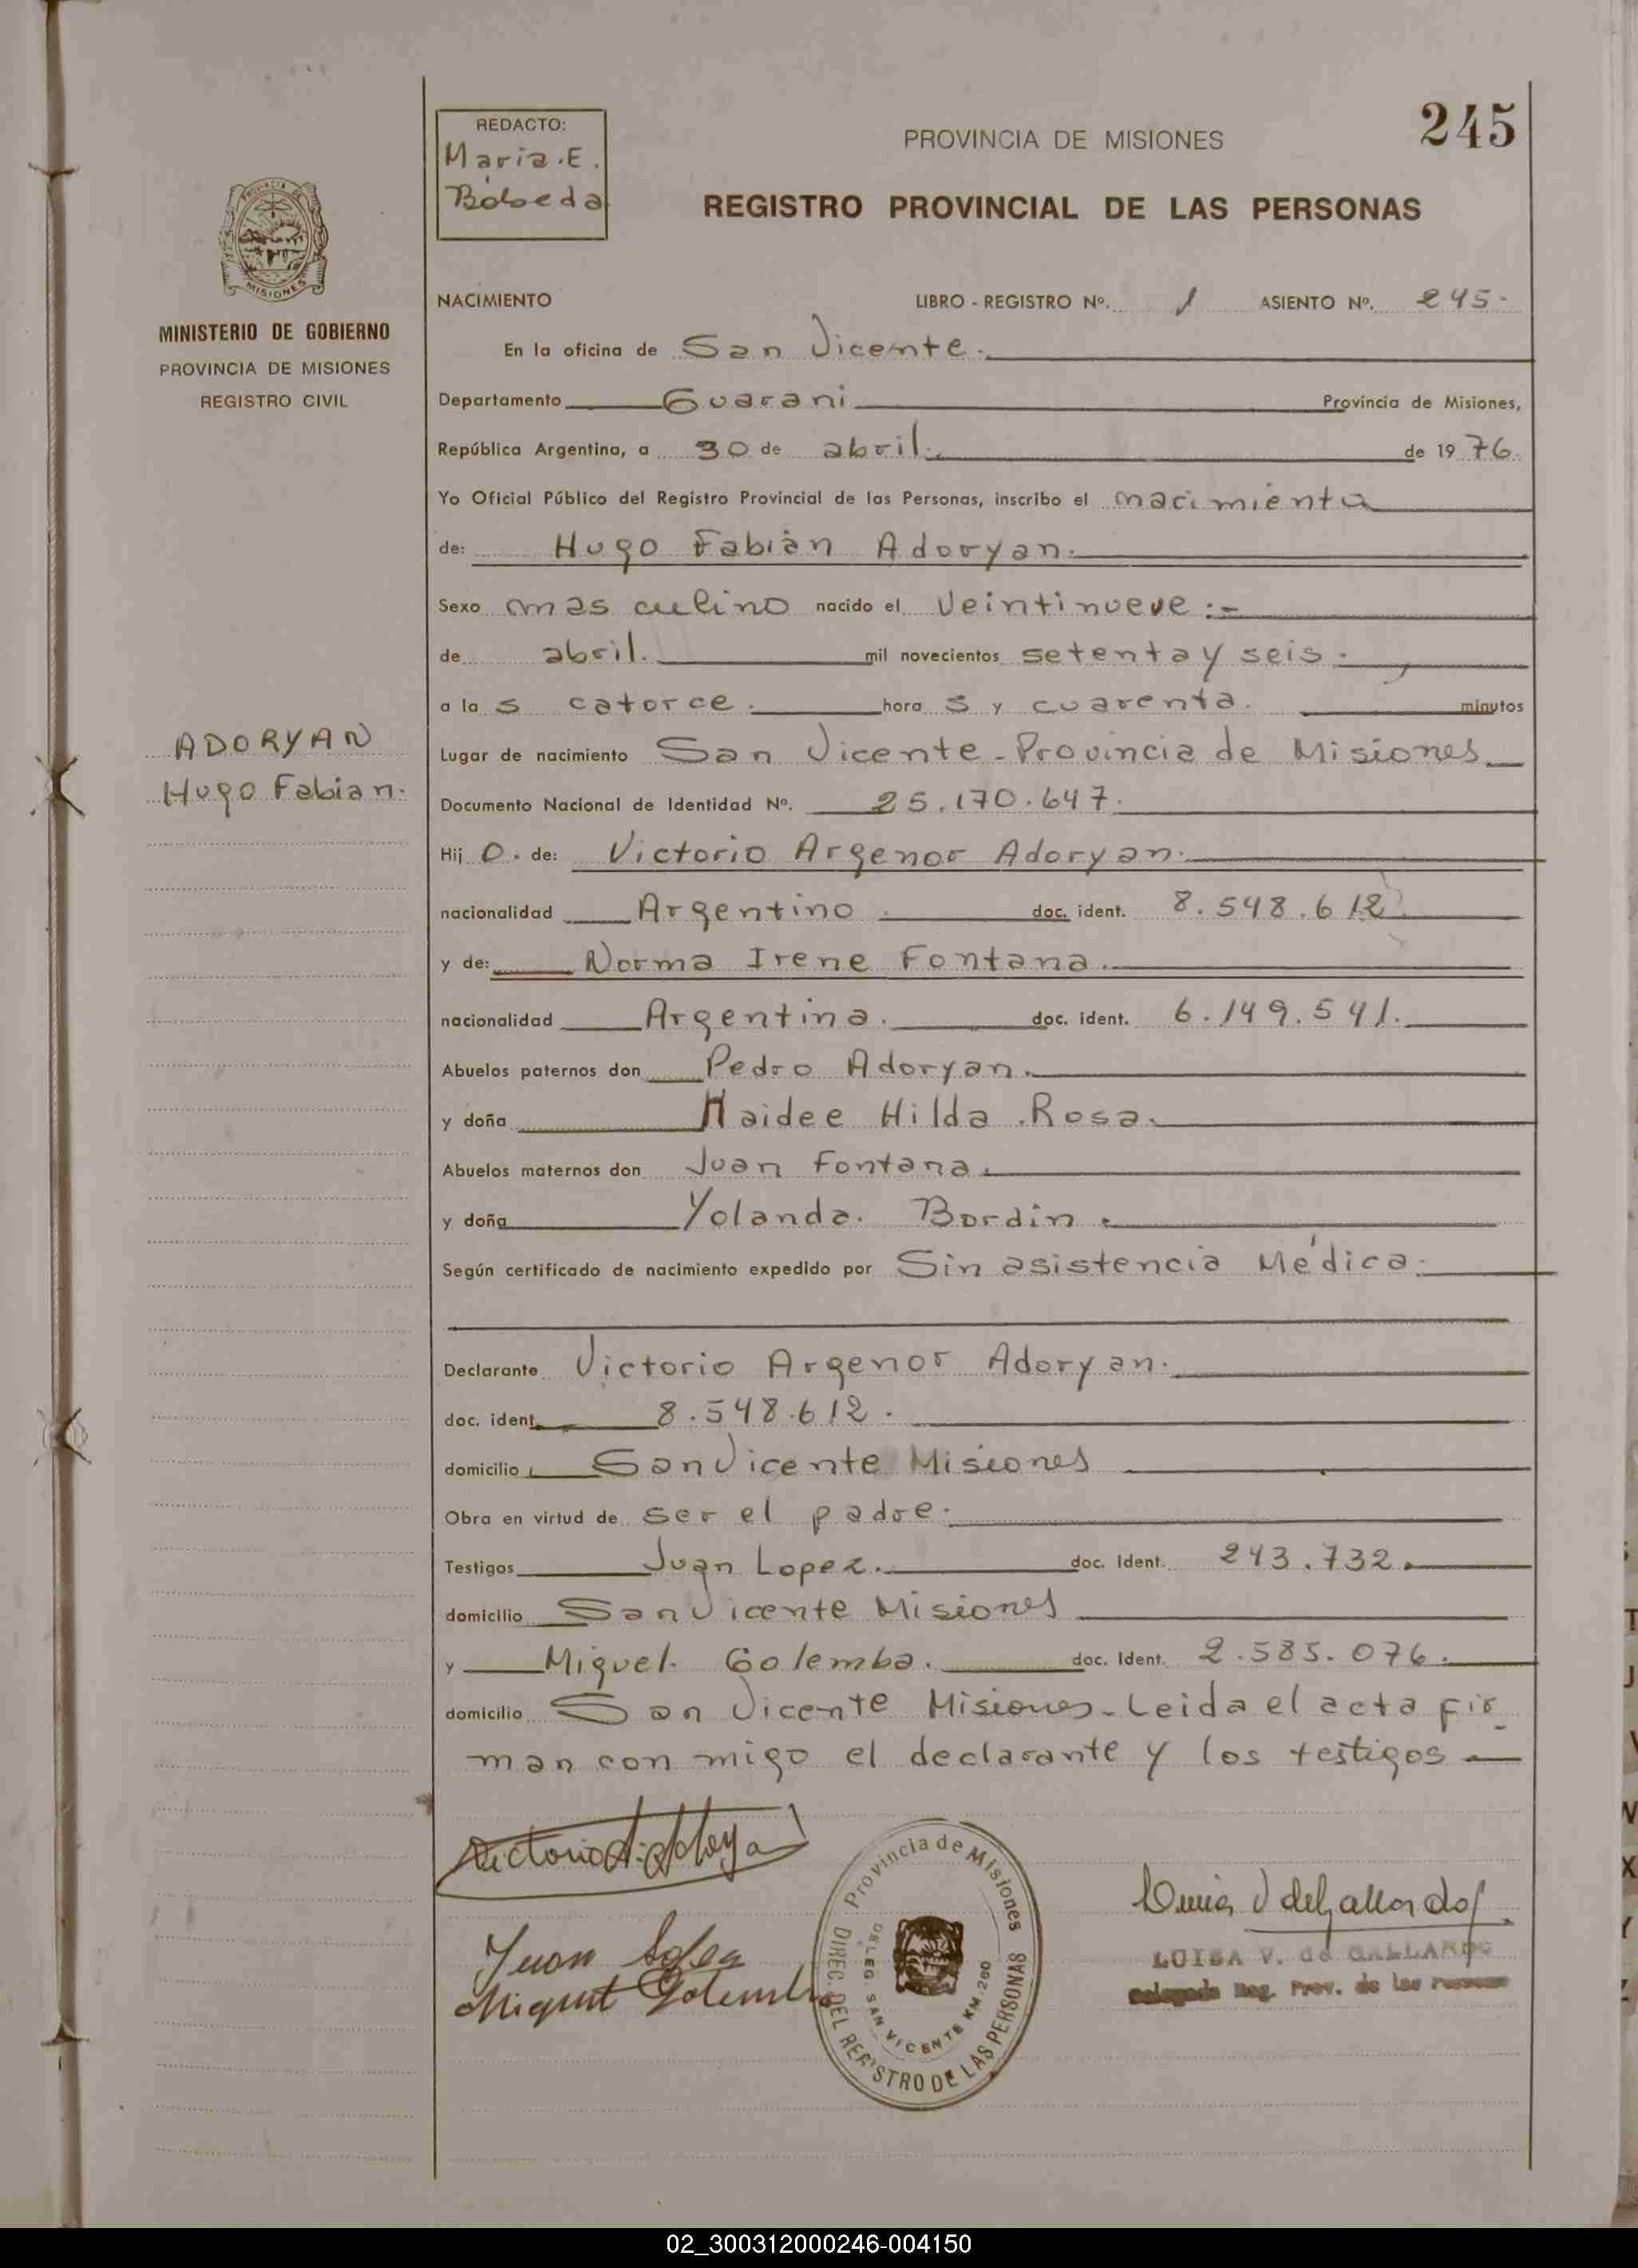 245
REDACTO:
Maria.E.
Bóbeda
PROVINCIA DE MISIONES
REGISTRO PROVINCIAL DE LAS PERSONAS
PROVINCIA DE
MISIONES
MINISTERIO DE GOBIERNO
PROVINCIA DE MISIONES
REGISTRO CIVIL
NACIMIENTO LIBRO - REGISTRO Nº. 1 ASIENTO Nº. 245-
En la oficina de San Vicente.
Departamento Guarani Provincia de Misiones,
República Argentina, a 30 de abril. de 1976.
Yo Oficial Público del Registro Provincial de las Personas, inscribo el nacimiento
de: Hugo Fabián Adoryan.
Sexo masculino nacido el veintinueve:-
de abril. mil novecientos setenta y seis.
a las catorce. horas y cuarenta. minutos
ADORYAN
Hugo Fabian.
Lugar de nacimiento San Vicente - Provincia de Misiones
Documento Nacional de Identidad Nº. 25.170.647.
Hijo. de: Victorio Argenor Adoryan.
nacionalidad Argentino. doc. ident. 8.548.612
y de: Norma Irene Fontana.
nacionalidad Argentina. doc. ident. 6.149.541.
Abuelos paternos don Pedro Adoryan.
y doña Haidee Hilda Rosa.
Abuelos maternos don Juan Fontana.
y doña Yolanda. Bordin.
Según certificado de nacimiento expedido por Sin asistencia Médica.
Declarante Victorio Argenor Adoryan.
doc. ident. 8.548.612.
domicilio San Vicente Misiones
Obra en virtud de ser el padre.
Testigos Juan Lopez. doc. Ident. 243.732.
domicilio San Vicente Misiones
y Miguel. Golemba. doc. Ident. 2.585.076.
domicilio San Vicente Misiones - Leida el acta fir-
man con migo el declarante y los testigos
Provincia de Misiones
DIREC. DEL REGISTRO DE LAS PERSONAS
DELEG. SAN VICENTE KM.260
Juan
Miguel Golemba
LUISA V. de GALLARDO
Delegada Reg. Prov. de las Personas
02_300312000246-004150